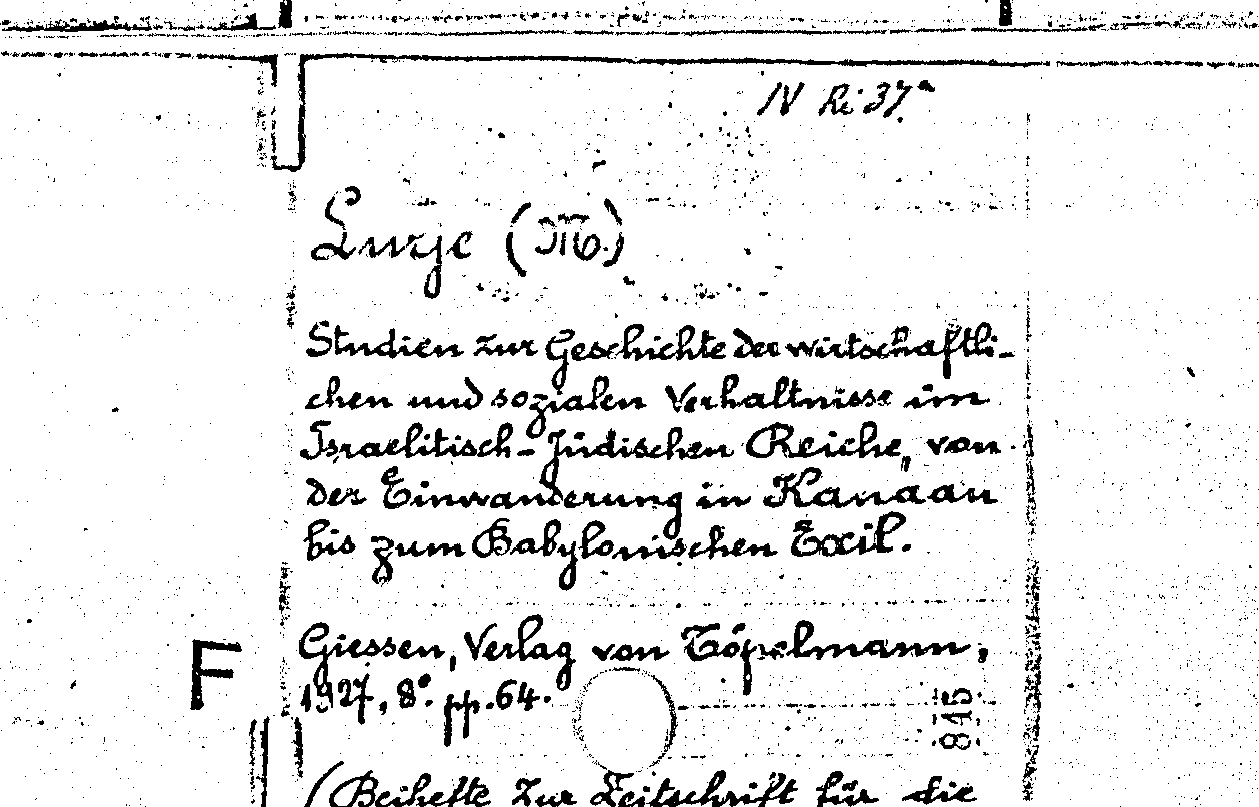 IV Ri 37.a
Lurje (M.)
Studien zur Geschichte der wirtschaftli-
chen und sozialen Verhaltnisse im
Israelitisch-Jüdischen Reiche, von
der Einwanderung in Kanaan
bis zum Babylonischen Exil.
Giessen, Verlag von Töpelmann,
F
1927, 8° pp. 64.
845
(Beihefte zur Zeitschrift für die